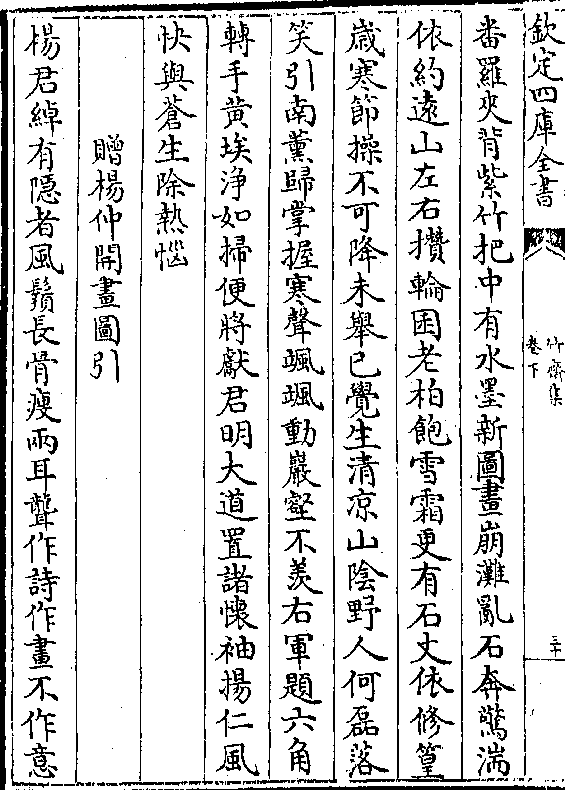 欽定四庫全書
竹齋集
卷下
三十
番羅夾背紫竹把中有水墨新圖畫崩灘亂石奔驚湍
依約遠山左右攢輪囷老柏飽雪霜更有石丈依修篁
歲寒節操不可降未舉已覺生清凉山陰野人何磊落
笑引南薰歸掌握寒聲颯颯動巖壑不羨右軍題六角
轉手黄埃浄如掃便將獻君明大道置諸懷袖揚仁風
快與蒼生除熱惱
贈楊仲開畫圖引
楊君綽有隱者風鬚長骨瘦兩耳聾作詩作畫不作意